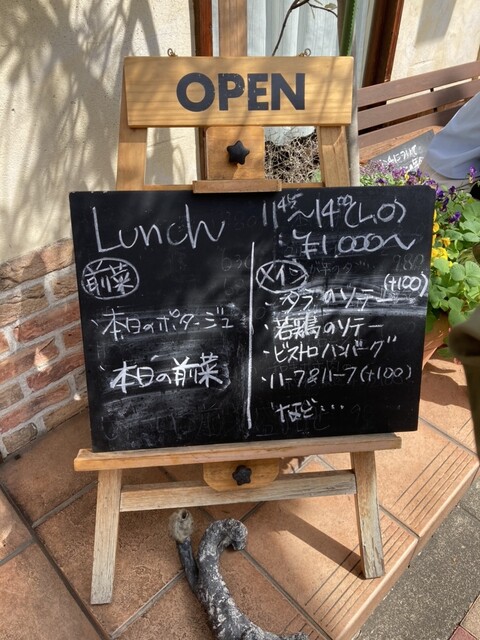 OPEN
Lunch
11:45~14:00(L.O)
¥1000~
前菜
・本日のポタージュ
・本日の前菜
メイン
・タラのソテー(+100)
・若鶏のソテー
・ビストロハンバーグ
・ハーフ&ハーフ(+100)
など…